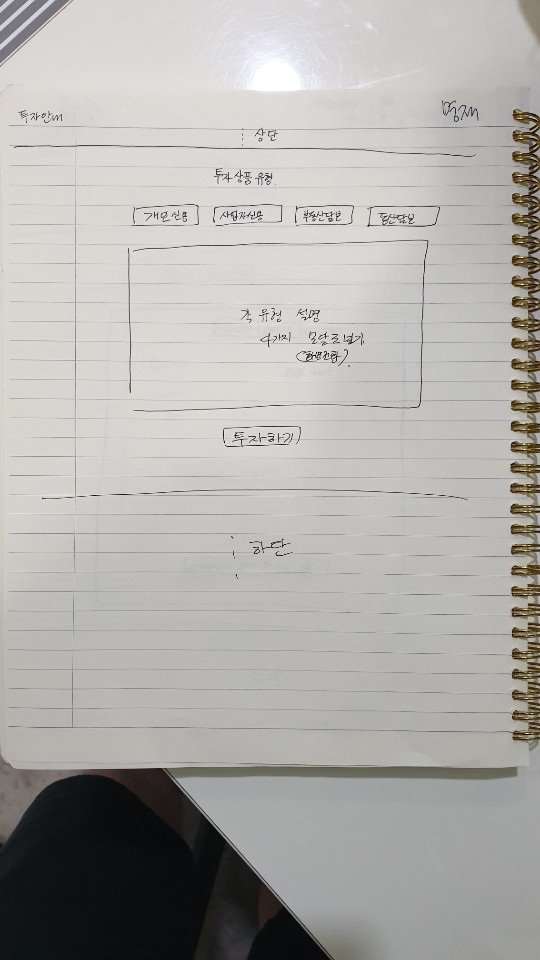 투자안내
명재
상단
투자 상품 유형
개인신용 사업자신용 부동산담보 동산담보
각 유형 설명
4가지
투자하기
하단